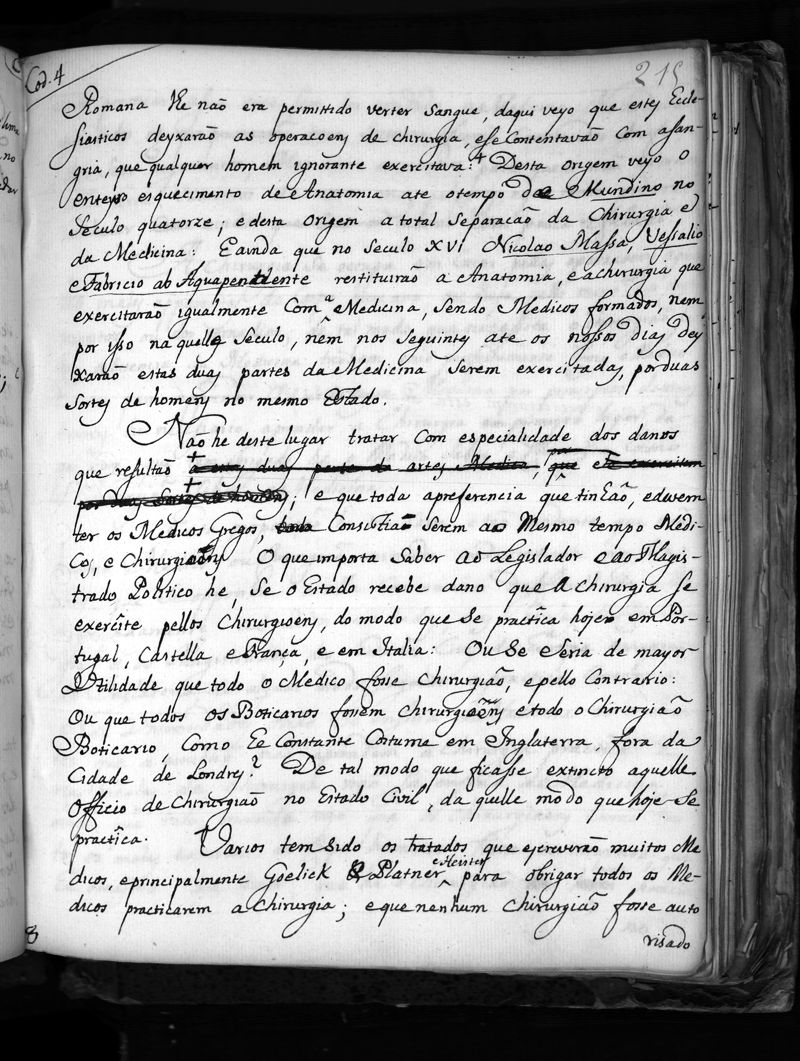 Cod. 4
215
Romana lhe não era permittido verter sangue, daqui veyo que estes Eccle-
siasticos deyxarão as operacoens de chirurgia, ese Contentavão Com asan-
gria, que qualquer homem ignorante exercitava: Desta origem veyo o
enteyro esquecimento de Anatomia ate otempo de Mundino no
Seculo quatorze; edesta origem a total separacão da Chirurgia e
da Medicina: Eainda que no Seculo XVI Nicolao Massa, Vessalio
e Fabricio ab Aquapendente restituirão a Anatomia, eachirurgia que
exercitarão igualmente Com a Medicina, sendo Medicos formados, nem
por isso naquelle Seculo, nem nos seguintes ate os nossos dias dey
xarão estas duas partes da Medicina serem exercitadas, porduas
sortes de homens no mesmo Estado.
Não he deste lugar tratar Com especialidade dos danos
que resultão a estas duas parte da artes Medica, que
; e que toda apreferencia que tinhão, edevem
ter os Medicos Gregos, Consistia serem ao Mesmo tempo Medi-
Cos, e Chirurgioens O que importa Saber ao Legislador e ao Magis-
trado Politico he, se o Estado recebe dano que a Chirurgia se
exercite pellos Chirurgioens, do modo que se practica hoje em Por-
tugal, Castella e França, e em Italia: Ou Se Seria de mayor
Utilidade que todo o Medico fosse Chirurgião, epello Contrario:
Ou que todos os Boticarios fossem Chirurgioens etodo o Chirurgião
Boticario, como he Constante Costume em Inglaterra, fora da
Cidade de Londres? De tal modo que ficasse extincto aquelle
Officio de Chirurgião no Estado Civil, da quelle modo que hoje se
practica. Varios tem sido os tratados que escreverão muitos Me
dicos, eprincipalmente Goelick & Platner eHeister para obrigar todos os Me-
dicos practicarem a Chirurgia; eque nenhum Chirurgião fosse auto
risado
8